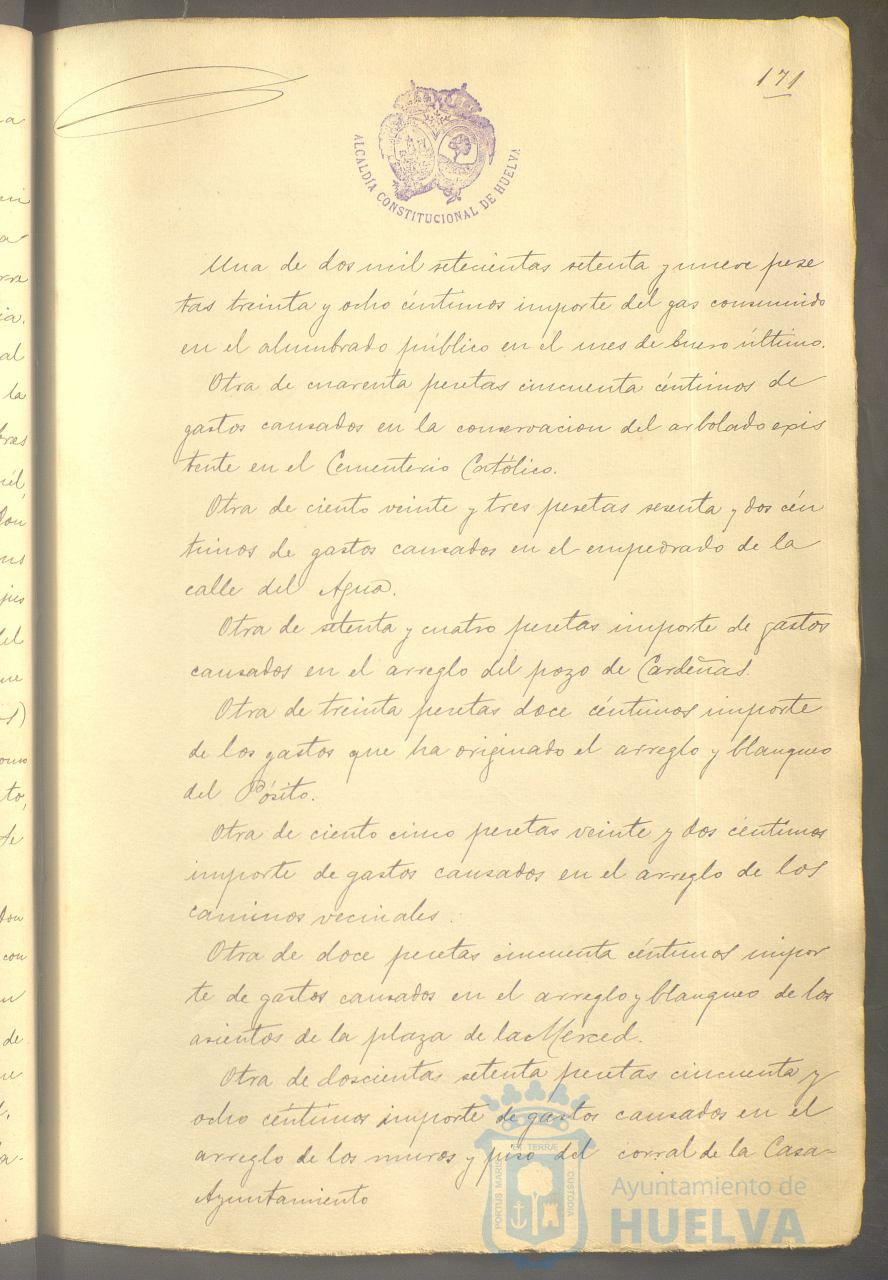 171
ALCALDÍA CONSTITUCIONAL DE HUELVA
Una de dos mil setecientas setenta y nueve pese
tas treinta y ocho céntimos importe del gas consumido
en el alumbrado público en el mes de Enero último.
Otra de cuarenta pesetas cincuenta céntimos de
gastos causados en la conservacion del arbolado exis
tente en el Cementerio Católico.
Otra de ciento veinte y tres pesetas sesenta y dos cén
timos de gastos causados en el empedrado de la
calle del Agua.
Otra de setenta y cuatro pesetas importe de gastos
causados en el arreglo del pozo de Cardeñas.
Otra de treinta pesetas doce céntimos importe
de los gastos que ha originado el arreglo y blanqueo
del Pósito.
Otra de ciento cinco pesetas veinte y dos céntimos
importe de gastos causados en el arreglo de los
caminos vecinales.
Otra de doce pesetas cincuenta céntimos impor
te de gastos causados en el arreglo y blanqueo de los
asientos de la plaza de la Merced.
Otra de doscientas setenta pesetas cincuenta y
ocho céntimos importe de gastos causados en el
arreglo de los muros y piso del corral de la Casa-
Ayuntamiento
PORTUS MARIS ET TERRÆ CUSTODIA
Ayuntamiento de
HUELVA